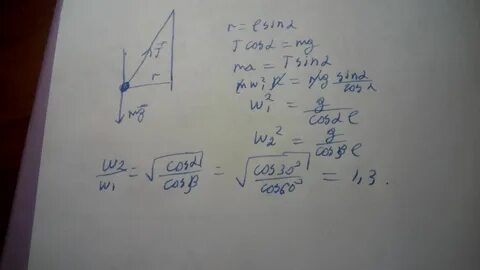 r = ℓ sin α
T cos α = mg
ma = T sin α
T⃗
r
m w₁² r = mg sin α / cos α
mg⃗
w₁² = g / cos α ℓ
w₂² = g / cos β ℓ
w₂ / w₁ = √(cos α / cos β) = √(cos 30° / cos 60°) = 1,3.